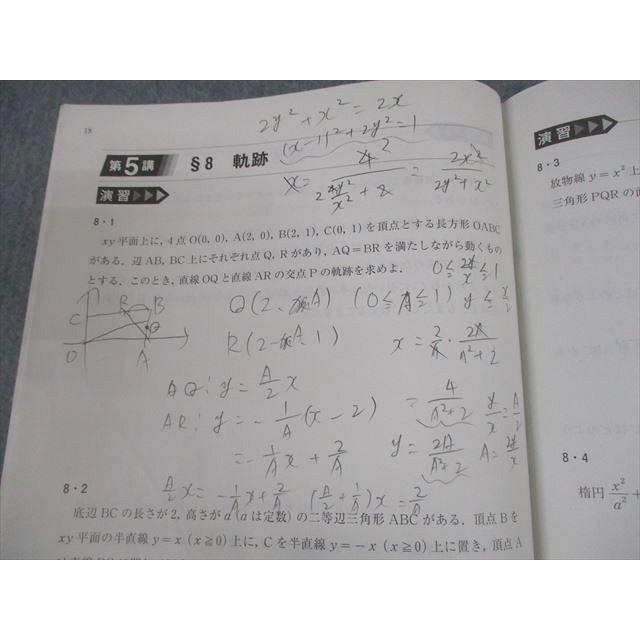 18
2y²+x²=2x
(x-1)²+2y²=1
第5講 §8 軌跡
演習
8・1
xy平面上に,4点O(0, 0), A(2, 0), B(2, 1), C(0, 1)を頂点とする長方形OABC
がある.辺AB, BC上にそれぞれ点Q, Rがあり,AQ=BRを満たしながら動くもの
とする.このとき,直線OQと直線ARの交点Pの軌跡を求めよ.
0≦2y/x≦1
Q(2, A) (0≦A≦1) y≦x/2
R(2-A, 1)
C R B Q O A
x=2/A・2A/(A²+2)
AQ: y=A/2 x
=4/(A²+2) y/x=A/2
AR: y=-1/A(x-2)
=-1/A x+2/A
y=2A/(A²+2) A=2y/x
A/2 x=-1/A x+2/A (A/2+1/A)x=2/A
8・2
底辺BCの長さが2, 高さがa(aは定数)の二等辺三角形ABCがある.頂点Bを
xy平面の半直線y=x (x≧0)上に,Cを半直線y=-x (x≧0)上に置き,頂点A
演習
8・3
放物線y=x²上
三角形PQRの
8・4
楕円 x²/a²+